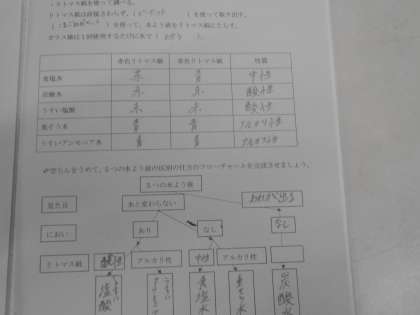 ・リトマス紙を使って調べる。
リトマス紙は直接さわらず、（ピンセット　）を使って取り出す。
（　　　）を使って、水よう液をリトマス紙にたらす。
ガラス棒は1回使用するたびに水で（　　　）。
赤色リトマス紙　青色リトマス紙　性質
食塩水　赤　青　中性
炭酸水　赤　赤　酸性
うすい塩酸　赤　赤　酸性
重そう水　青　青　アルカリ性
うすいアンモニア水　青　青　アルカリ性
空らんをうめて、5つの水よう液の区別の仕方のフローチャートを完成させましょう。
5つの水よう液
見た目　水と変わらない　あわが出る
におい　あり　なし　なし
リトマス紙　酸性　アルカリ性　中性　アルカリ性
うすい塩酸
食塩水
重そう水
炭酸水